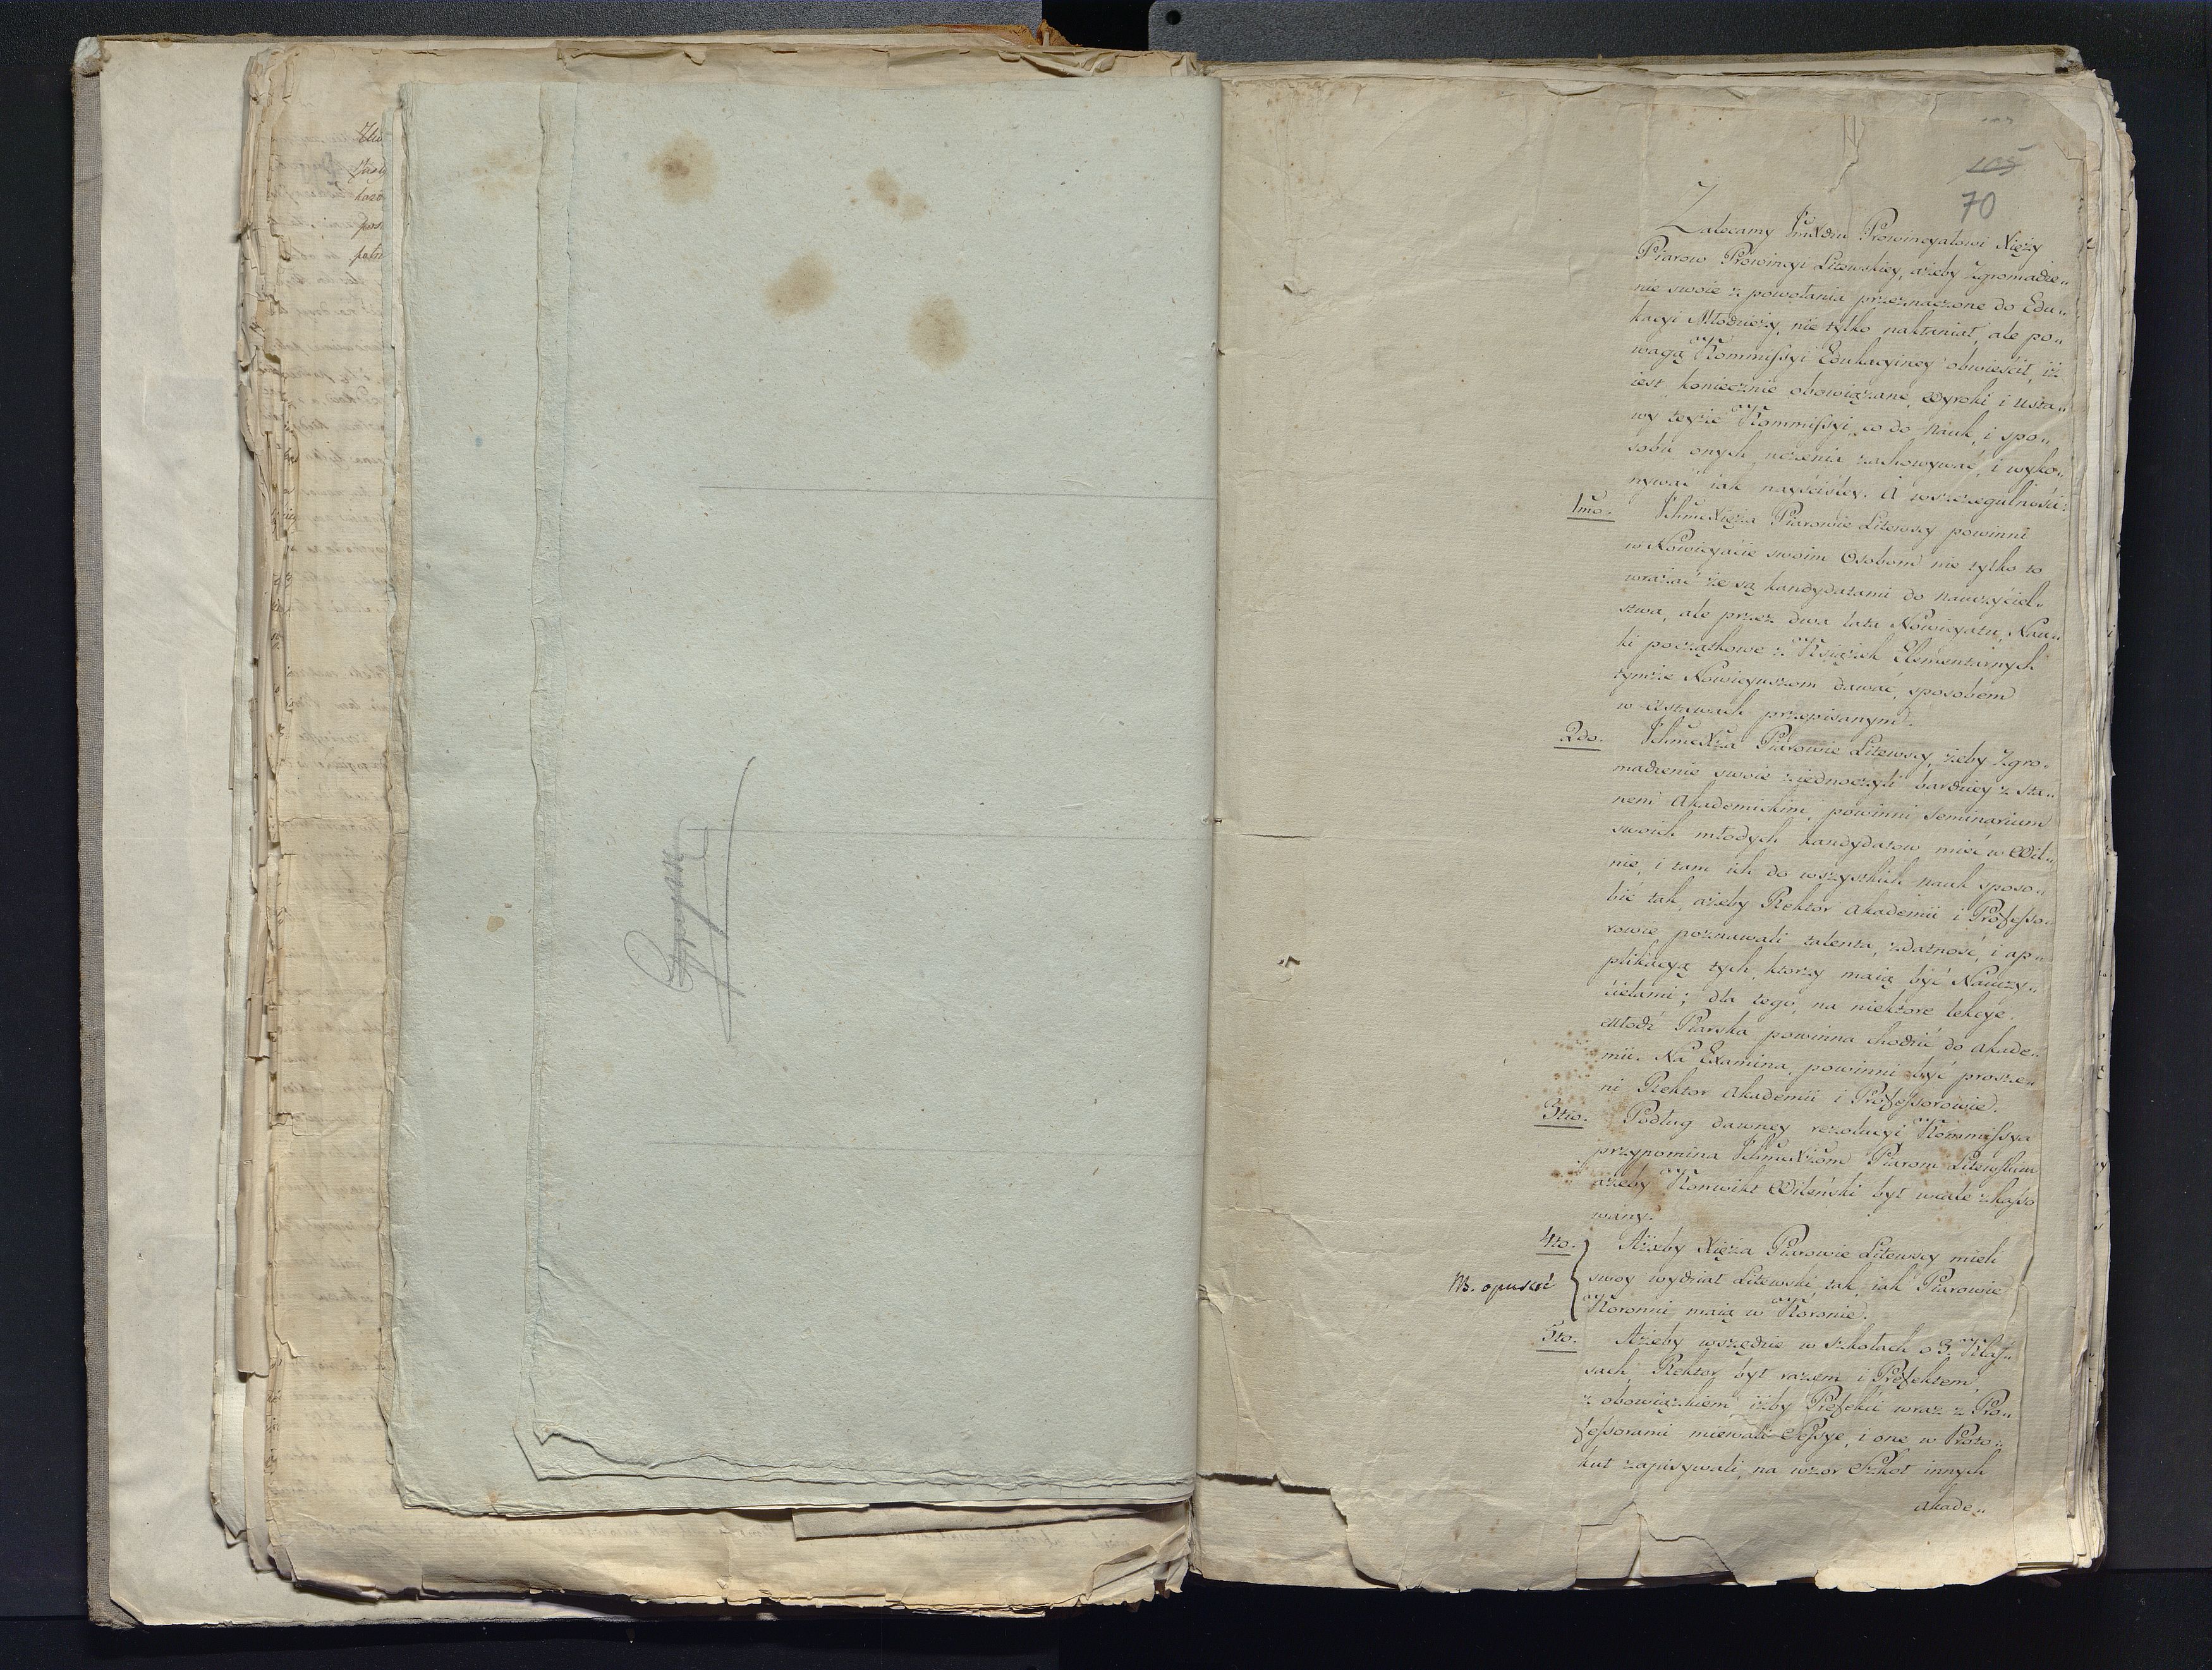 105
70
Zalecamy JmXdzu Prowincyałowi Xięży
Piarow Prowincyi Litewskiey, ażeby Zgromadze„
nie swoie z powołania przeznaczone do Edu„
kacyi Młodzieży, nie tylko nakłaniał, ale po„
wagą Kommissyi Edukacyiney obwieścił, iż
iest koniecznie obowiązane, Wyroki i Usta„
wy teyże Kommissyi, co do Nauk, i spo„
sobu onych uczenia zachowywać, i wyko„
nywać iak nayściśley. A wszczegulności:
1mo. IchmcXięża Piarowie Litewscy powinni
w Nowicyacie swoim Osobom nie tylko to
wrażać że są kandydatami do nauczyciel„
stwa, ale przez dwa lata Nowicyatu, Nau„
ki początkowe z Książek Elementarnych
tymże Nowicyuszom dawać, sposobem
w Ustawach przepisanym.
2do. IchmcXża Piarowie Litewscy, żeby Zgro„
madzenie swoie ziednoczyli bardziey z sta„
nem Akademickim, powinni Seminarium
swoich młodych kandydatow mieć w Wil„
nie, i tam ich do wszystkich nauk sposo„
bić tak, ażeby Rektor Akademii i Professo„
rowie poznawali talenta, zdatność, i ap„
plikacyą tych, ktorzy maią być Nauczy„
cielami; dla tego, na niektore lekcye,
Młodź Piarska powinna chodzić do Akade„
mii. Na Examina, powinni być prosze„
ni Rektor Akademii i Professorowie.
3tio. Podług dawney rezolucyi Kommissya
przypomina IchmcXżom Piarom Litewskim
ażeby Konwikt Wileński był wcale zkasso
wany.
4to. Ażeby Xięża Piarowie Litewscy mieli
NB. opuscić
swoy wydział Litewski, tak, iak Piarowie
Koronni maią w Koronie.
5to. Ażeby wszędzie w szkołach o 3. Klas„
sach, Rektor był razem i Prefektem,
z obowiązkiem iżby Prefekci wraz z Pro„
fessorami miewali Sessye, i one w Proto„
kuł zapisywali, na wzor Szkoł innych
Akade„